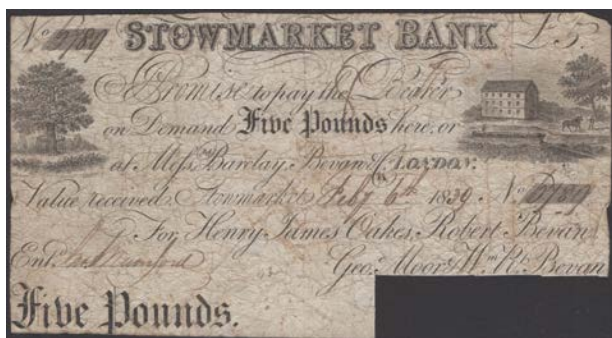 No 6789 STOWMARKET BANK £5.
I Promise to pay the Bearer
on Demand Five Pounds here, or
at Messrs. Barclay, Bevan & Co. LONDON.
Value received. Stowmarket Feby 6th 1839 No 6789
For Henry James Oakes, Robert Bevan
Entd. Geo. Moor & Wm. Rt. Bevan
Five Pounds.